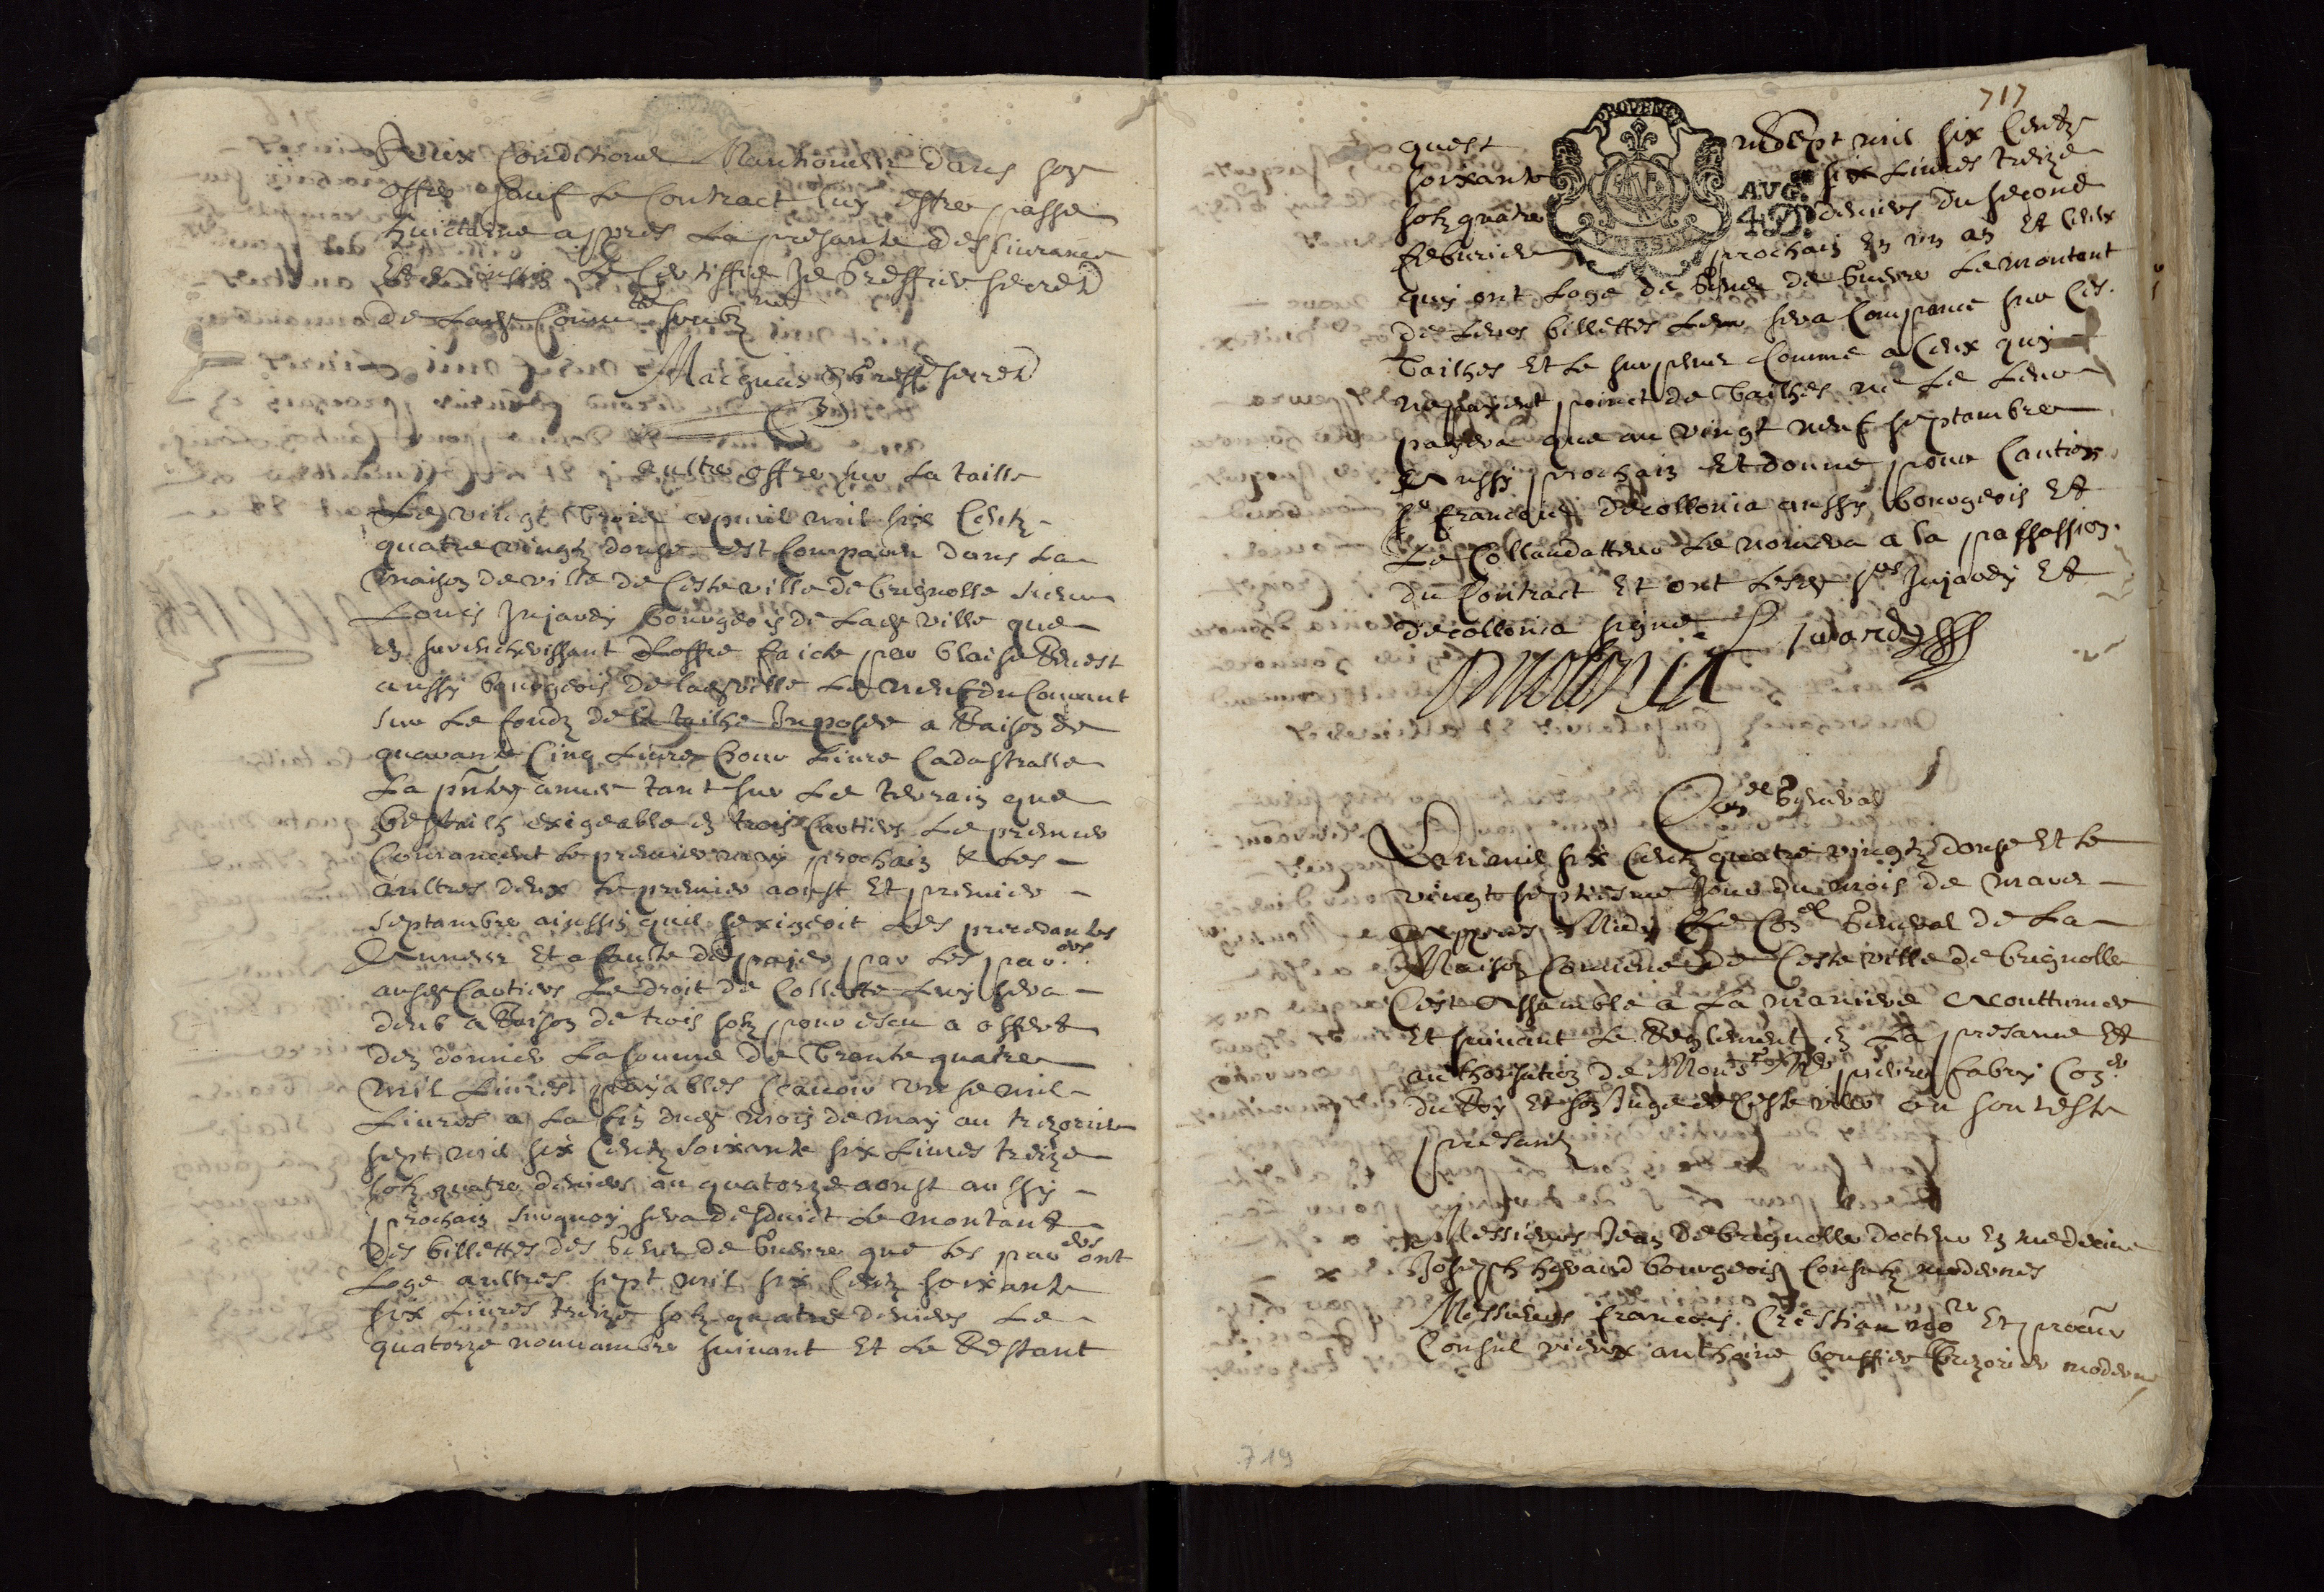 Aux Conditions Mantionees dans son
offre sauf le Contract luy estre passé
huictaine appres la presante deslivrance
Et ainssin le Certiffie Je Greffier secret.
de ladte Commté soubzné
Maqnan Greff secret
aultre offre sur la taille
Le vingt trois apvril mil six Centz
quatre vingtz douse est Comparu dans la
maison de ville de Ceste ville de brignolle sieur
Louis Jujardy bourgeois de ladte ville que
en surencherissant loffre faicte par blaise
aussy bourgeois de ladte ville le neuf du Courant
sur le fondz de la tailhe Imposée a Raison de
quarante Cinq livres pour livre Cadastralle
la pnte année tant sur le terrain que
bestailh exigeable en trois Cartiers le premier
Comancent le premier may prochain & les
aultres deux le premier aoust Et premier
septambre ainssin quil sexigeoit les precedantes
Années Et a faulte de payer par les parers
ausds Cartiers le droit de Collette luy sera
deub a Raison de trois solz pour escu a offert
den donner la somme de trente quatre
mil livres payables scavoir unse mil
livres a la fin dudt mois de may au trezorier
sept mil six Centz soixante six livres treize
solz quatre deniers au quatorze aoust aussy
prochain surquoy sera desduict le montant
des billettes des gens de guerre que les parers ont
logé aultres sept mil six Centz soixante
six livres treize solz quatre deniers le
quatorze novambre suivant Et le Restant
717
quest sept mil six Centz
soixante six livres treize
AVG.
solz quatre deniers du second
4 D
febvrier prochain En un an Et Ceux
quy ont logé de gens de guerre le montant
de leurs billettes leur sera Compancé sur les
tailhes Et le surplus Comme a Ceux quy
ne payent poinct de tailhes ne le leur
payera que au vingt neuf septambre
Aussy prochain Et donne pour Caution
sr francois decollonia aussy bourgeois Et
le Collaudatteur le nomera a la passassion
du Contract Et ont lesds srs Jujardy Et
decollonia signé L Juiardy
decolonia
Conel General
Lan mil six Centz quatre vingtz douse Et le
vingt septiesme Jour du mois de mars
appres Midy Le Conel general de la
Maison Commune de Ceste ville de brignolle
Cest Assamblé a la maniere acouttumée
Et suivant le Reglement en la presance Et
authorisation de Monsr pierre fabry Coner
du Roy Et son Juge de Ceste ville ou sont esté
presantz
Messieurs Jean de brignolle docteur En medecine
Joseph heraud bourgeois Consulz modernes
Messieurs francois Crestian nore Et procur
Consul vieux anthoine bouffier trezorier moderne
719